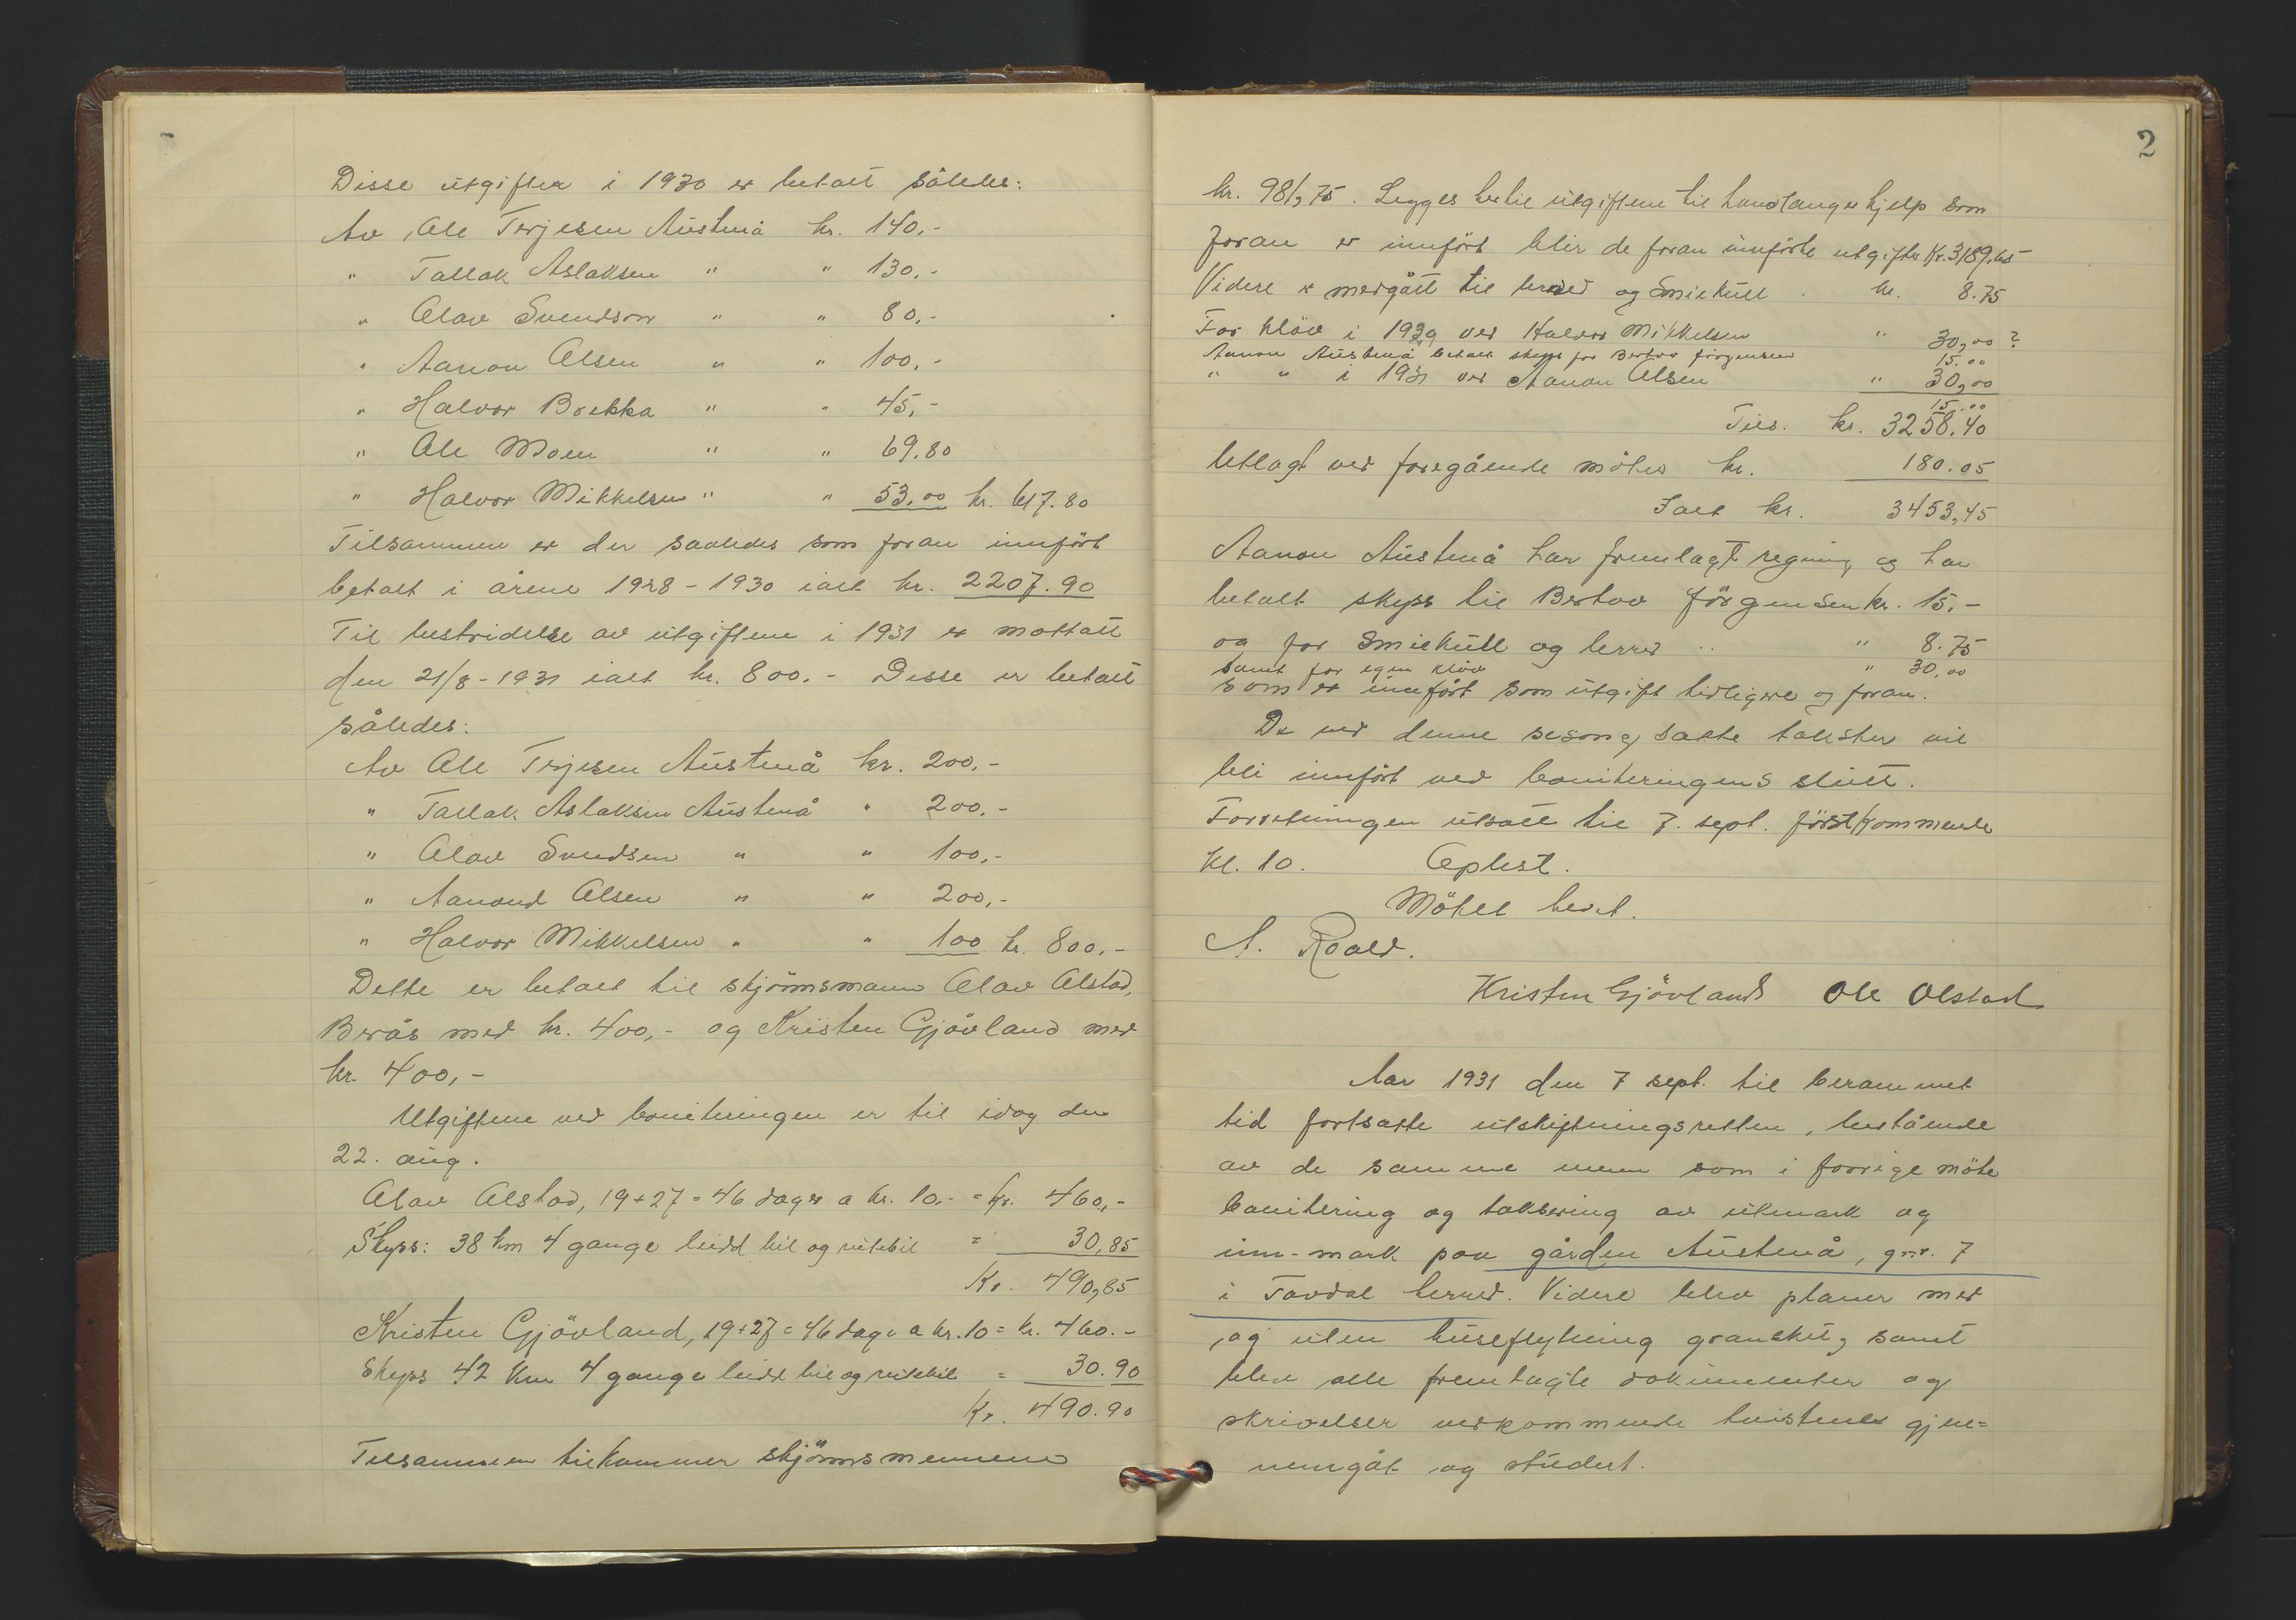 Disse utgifter i 1930 er betalt således:
Av Ole Terjesen Austenå kr. 140.-
" Tallak Aslaksen " " 130.-
" Olav Svendson " " 80.-
" Aanon Olsen " " 100.-
" Halvor Brekka " " 45.-
" Ole Moen " " 69.80
" Halvor Mikkelsen " " 53.00 kr. 617.80
Tilsammen er der saaledes som foran innført
betalt i årene 1928-1930 ialt kr. 2207.90
Til bestridelse av utgiftene i 1931 er mottatt
den 21/8-1931 ialt kr. 800.- Disse er betalt
således:
Av Ole Terjesen Austenå kr. 200.-
" Tallak Aslaksen Austenå " 200.-
" Olav Svendsen " " 100.-
" Aanond Olsen " " 200.-
" Halvor Mikkelsen " " 100 kr. 800.-
Dette er betalt til skjønnsmann Olav Olstad,
Berås med kr. 400,- og Kristen Gjøvland med
kr. 400,-
Utgiftene ved boniteringen er til idag den
22. aug.
Olav Olstad, 19+27=46 dager a kr. 10.- = kr. 460,-
Skyss: 38 km 4 gange leid bil og rutebil = 30,85
Kr. 490,85
Kristen Gjøvland, 19+27=46 dage a kr. 10 = kr. 460.-
Skyss 42 km 4 gange leid bil og rutebil = 30.90
Kr. 490.90
Tilsammen tilkommer skjønnsmennene
2
kr. 981,75. Legges hertil utgiftene til handlangerhjelp som
foran er innført blir de foran innførte utgifter Kr. 3189,65
Videre er medgått til lerred og smiekull . kr. 8.75
For kløv i 1929 ved Halvor Mikkelsen " 30,00 ?
Aanon Austenå betalt skyss for Bertov Jørgensen 15.00
" " i 1931 ved Aanon Olsen " 30,00
15.00
Tils. kr. 3258.40
betlagt ved foregående møter kr. 180.05
Ialt kr. 3453,45
Aanon Austenå har fremlagt regning og har
betalt skyss til Bertov Jørgensen kr. 15.-
og for smiekull og lerred .. " 8.75
samt for egen kløv " 30,00
som er innført som utgift tidligere og foran.
De ved denne sesong satte takster vil
bli innført ved boniteringens slutt.
Forretningen utsatt til 7. sept. førstkommende
kl. 10. Oplest.
Møtet hevet.
A. Roald.
Kristen Gjøvland Ole Olstad
Aar 1931 den 7 sept. til berammet
tid fortsatte utskiftningsretten, bestående
av de samme menn som i forrige møte
bonitering og taksering av utmark og
inn-mark paa gården Austenå, gnr. 7
i Tovdal herred. Videre blev planer med
og uten huseflytning gransket, samt
blev alle fremlagte dokumenter og
skrivelser vedkommende tvistene gjen=
nemgåt og studert.